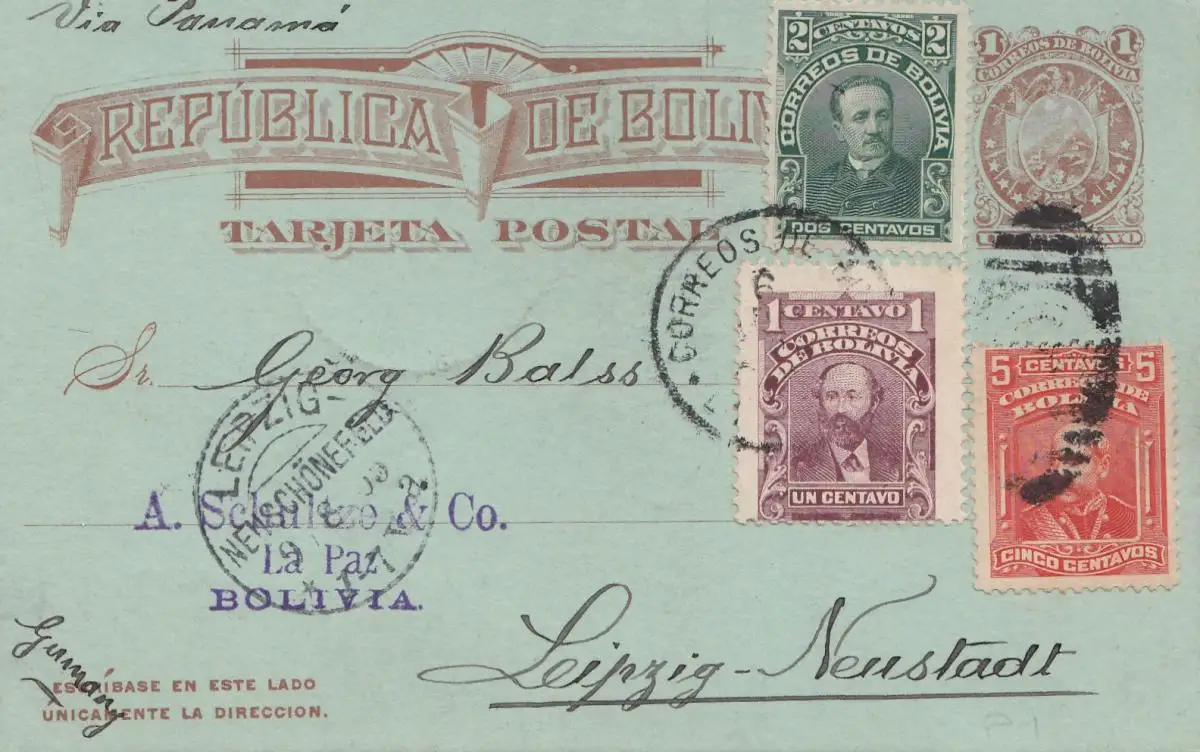 Via Panamá
REPÚBLICA DE BOLIV
TARJETA POSTAL
2 CENTAVOS 2
CORREOS DE BOLIVIA
DOS CENTAVOS
1 1
CORREOS DE BOLIVIA
UN CENTAVO
CORREOS DE
6
1 CENTAVO 1
CORREOS
DE BOLIVIA
UN CENTAVO
5 CENTAVOS 5
CORREOS DE
BOLIVIA
CINCO CENTAVOS
Sr. Georg Balss
LEIPZIG-
NEUSCHÖNEFELD
A. Schultze & Co.
La Paz
BOLIVIA.
Leipzig-Neustadt
Germany
ESCRÍBASE EN ESTE LADO
UNICAMENTE LA DIRECCION.
P-1